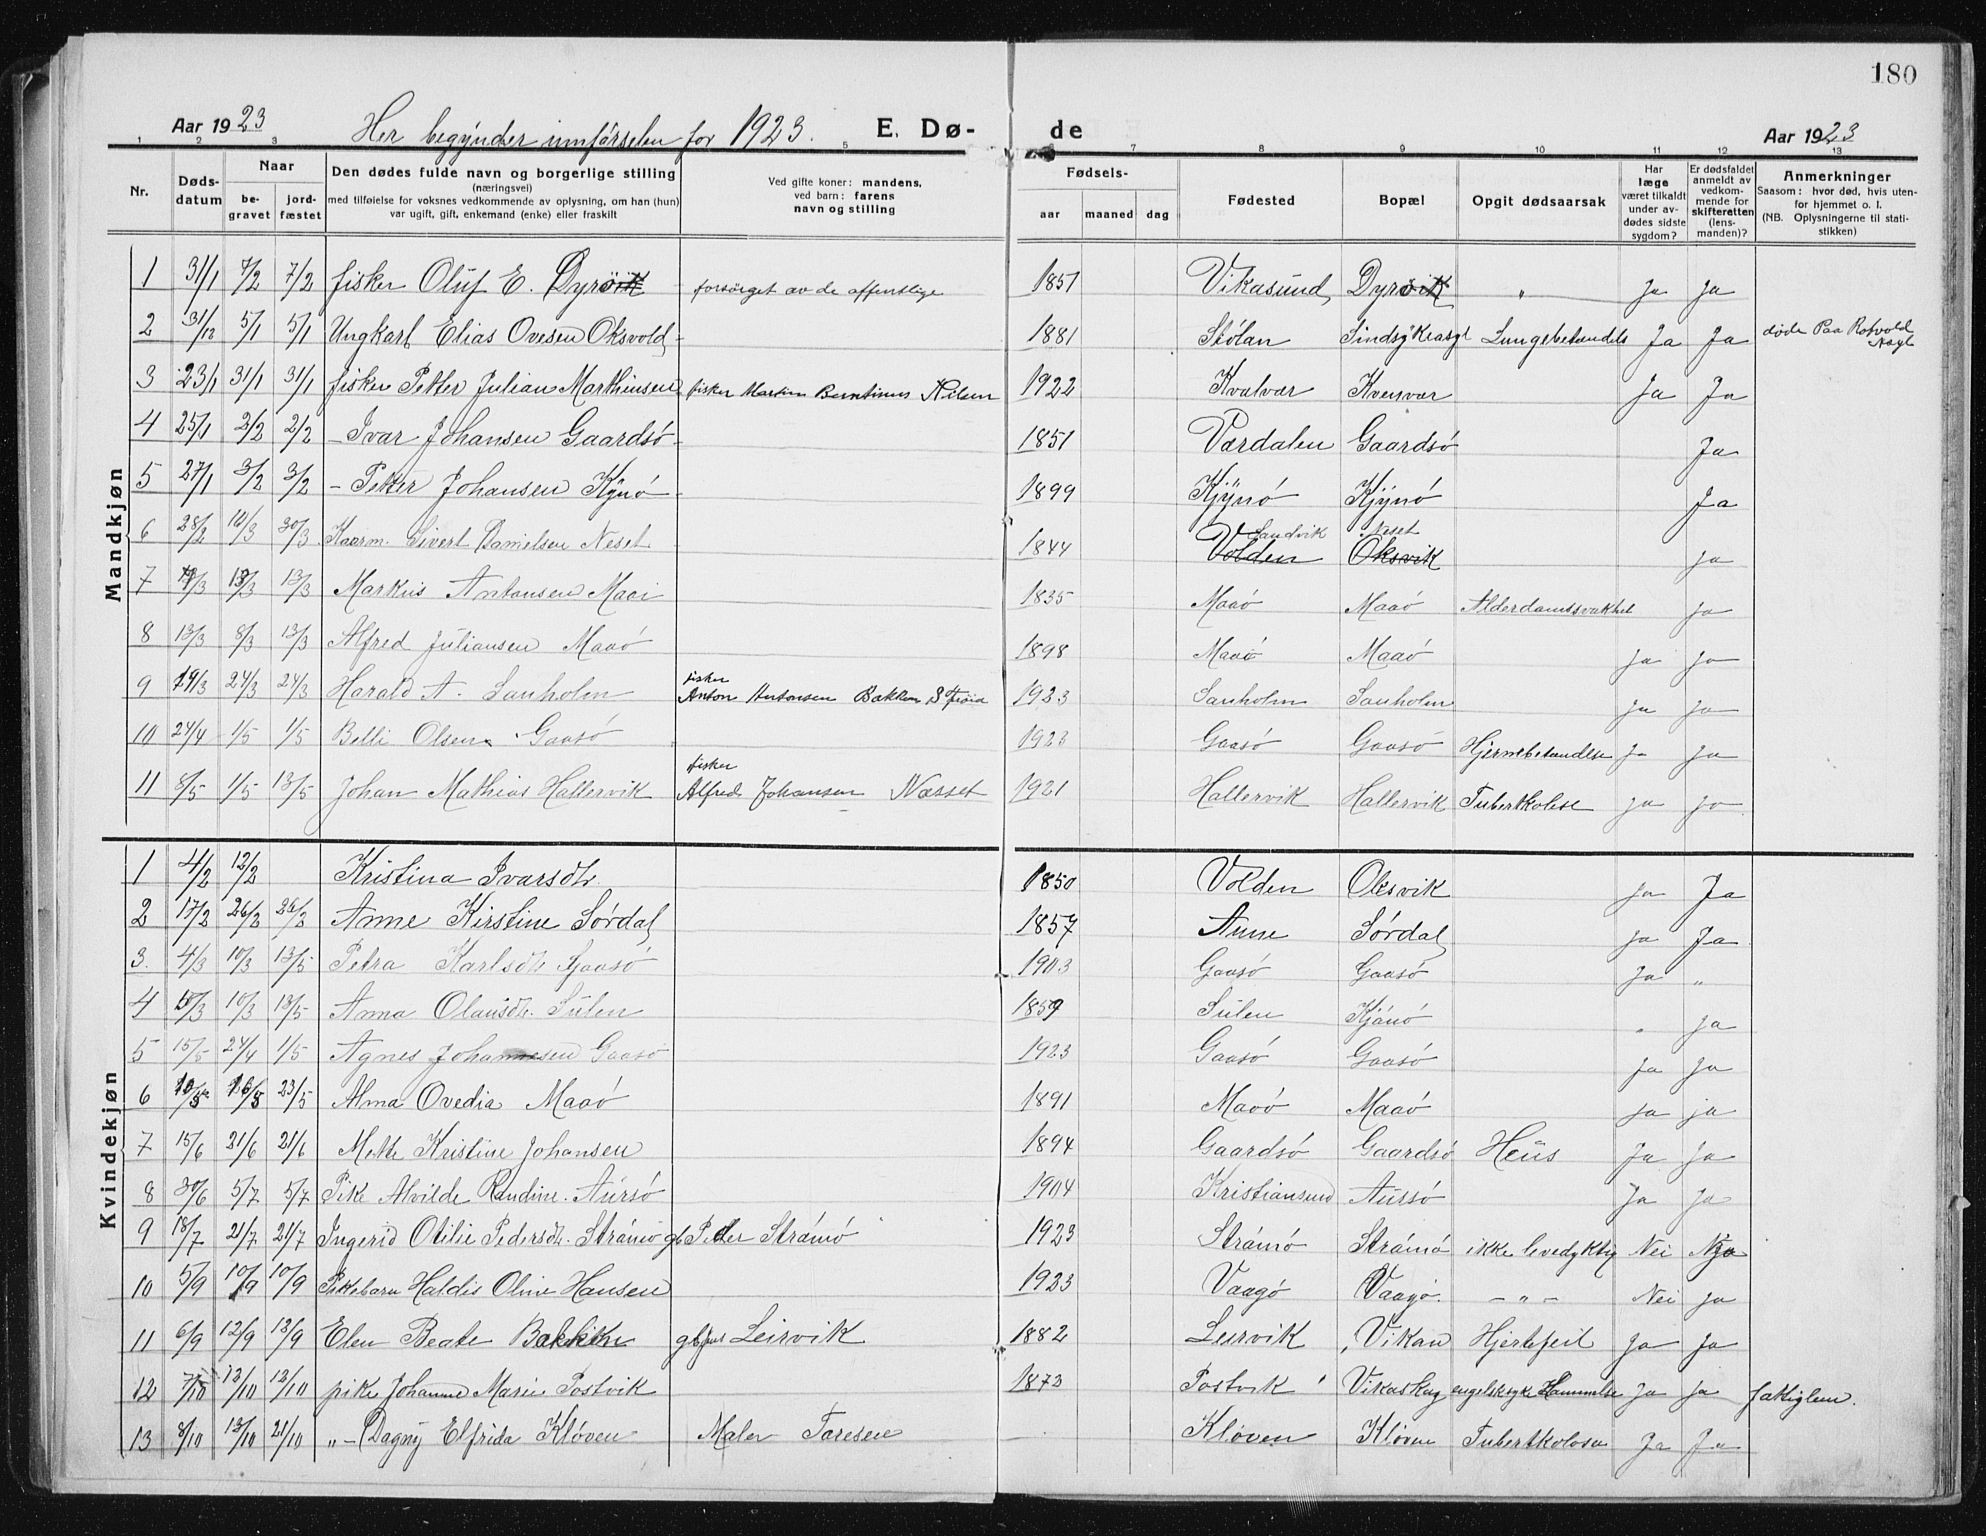 180
Aar 1923 Her begynder innførselen for 1923. E. Dø- de Aar 1923
1 2 3 5 6 7 8 9 10 11 12 13
Nr. Døds-datum Naar be-gravet jord-fæstet Den dødes fulde navn og borgerlige stilling (næringsvei) med tilføielse for voksnes vedkommende av oplysning, om han (hun) var ugift, gift, enkemand (enke) eller fraskilt Ved gifte koner: mandens, ved barn: farens navn og stilling Fødsels- aar maaned dag Fødested Bopæl Opgit dødsaarsak Har læge været tilkaldt under av-dødes sidste sygdom? Er dødsfaldet anmeldt av vedkom-mende for skifteretten (lens-manden)? Anmerkninger Saasom: hvor død, hvis uten-for hjemmet o. l. (NB. Oplysningerne til stati-stikken)
Mandkjøn
1 31/1 7/2 7/2 fisker Oluf E. Dyrøvik forsørget av de offentlige 1851 Vikasund Dyrøvik " Ja Ja
2 31/12 5/1 5/1 Ungkarl Elias Ovesen Oksvold 1881 Stølan Sindsykeasyl Lungebetændels Ja Ja døde Paa Rotvold Asyl
3 23/1 31/1 31/1 fisker Petter Julian Marthinsen fisker Martin Berntinus Nilsen 1922 Kvalvær Kvenvær Ja Ja
4 25/1 2/2 2/2 - Ivar Johansen Gaardsø 1851 Værdalen Gaardsø Ja
5 27/1 3/2 3/2 - Petter Johansen Kynø 1899 Kjynø Kjynø Ja
6 28/2 10/3 30/3 Kaarm. Sivert Danielsen Neset 1844 Volden Sandvik Oksvik Neset ja
7 /3 13/3 13/3 Markus Antonsen Maøi 1835 Maaø Maaø Alderdomssvakhet ja
8 13/3 8/3 13/3 Alfred Juliansen Maaø 1898 Maaø Maaø ja ja
9 19/3 24/3 24/3 Harald A. Sauholm fisker Anton Antonsen Bakken, S Frøia 1923 Sauholm Sauholm ja ja
10 24/4 1/5 1/5 Belli Olsen Gaasø 1923 Gaasø Gaasø Hjernebetændelse Ja Ja
11 8/5 1/5 13/5 Johan Mathias Hallervik fisker Alfred Johansen Næsset 1921 Hallervik Hallervik Tuberkolose ja ja
Kvindekjøn
1 4/2 12/2 Kristina Ivarsdtr. 1850 Volden Oksvik ja Ja
2 17/2 26/2 26/2 Anne Kirstine Sørdal 1857 Aune Sørdal ja Ja
3. 4/3 10/3 13/5 Petra Karlsdtr Gaasø 1903 Gaasø Gaasø Ja "
4 /3 10/3 13/5 Anna Olausdtr. Sulen 1859 Sulen Kjønø " ja
5 15/5 24/4 1/5 Agnes Johannesen Gaasø 1923 Gaasø Gaasø ja ja
6 10/5 16/5 23/5 Alma Ovedia Maaø 1891 Maaø Maaø ja ja
7 15/6 21/6 21/6 Mette Kristine Johansen 1894 Gaardsø Gaardsø Ja ja
8 30/6 5/7 5/7 Pike Alvilde Randine Aursø 1904 Kristiansund Aursø Ja Ja
9 18/7 21/7 21/7 Ingerid Otilie Pedersdtr. Strømø gb Peder Strømø 1923 Strømø Strømø ikke levedyktig Nei
10 5/9 10/9 10/9 Pikebarn Haldis Oline Hansen 1923 Vaagø Vaagø. - " - Nei ja
11 6/9 12/9 13/9 Elen Beate Bakken Leirvik 1882 Leirvik Vikan Hjertefeil ja Ja
12 7/10 13/10 13/10 pike Johanne Marie Postvik 1873 Postvik Vikaskag engelsksyke Ja ja fattiglem.
13 8/10 13/10 21/10 " - Dagny Elfrida Kløven Maler Taresen Kløven Kløven Tuberkolosa Ja Ja